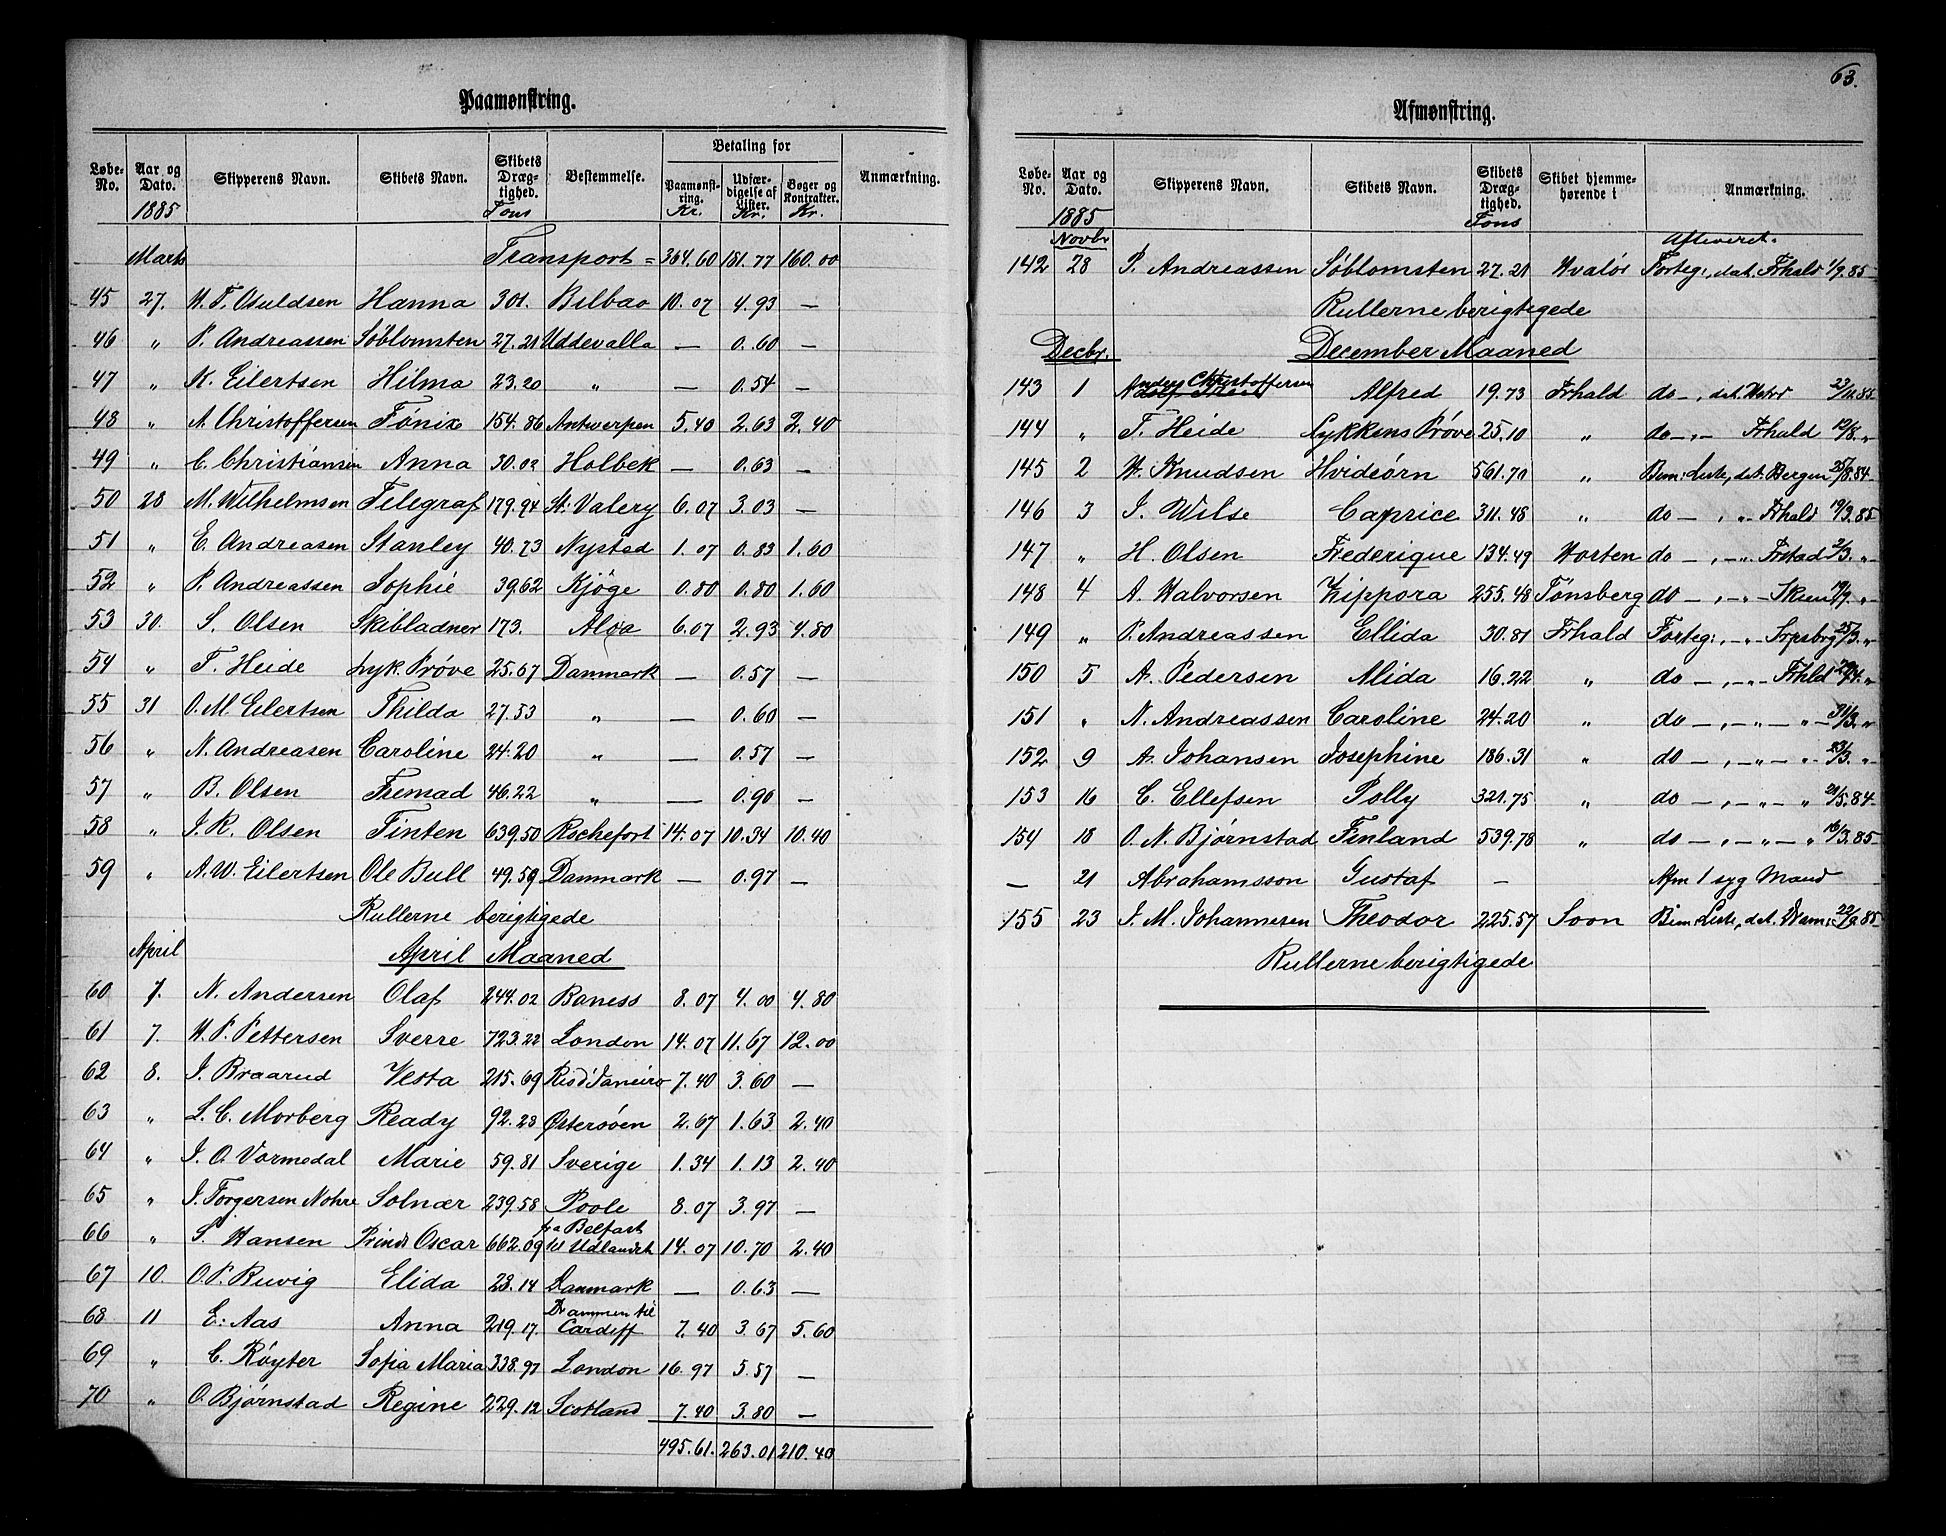 Paamønstring.
Løbe-No. | Aar og Dato. | Skipperens Navn. | Skibets Navn. | Skibets Dræg-tighed. | Bestemmelse. | Betaling for | Anmærkning.
Paamønst-ring. | Udfær-digelse af Lister. | Bøger og Kontrakter.
1885 Tons Kr. Kr. Kr.
Marts Transport = 364.60 181.77 160.00
45 27. H. T. Asuldsen Hanna 301. Bilbao 10.07 4.93 —
46 " P. Andreassen Søblomsten 27.21 Uddevalla — 0.60 —
47 " K. Eilertsen Hilma 23.20 " — 0.54 —
48 " A. Christoffersen Fønix 154.86 Antwerpen 5.40 2.63 2.40
49 " C. Christiansen Anna 30.02 Holbek — 0.63 —
50 28 M. Wilhelmsen Telegraf 179.94 St: Valery 6.07 3.03 —
51 " E. Andreasen Stanley 40.73 Nysted 1.07 0.83 1.60
52 " P. Andreassen Sophie 39.62 Kjøge 0.80 0.80 1.60
53 30. S. Olsen Skibladner 173. Aloa 6.07 2.93 4.80
54 " T. Heide Lyk. Prøve 25.67 Danmark — 0.57 —
55 31 O. M. Eilertsen Thilda 27.53 " — 0.60 —
56 " N. Andreasen Caroline 24.20 " — 0.57 —
57 " B. Olsen Fremad 46.22 " — 0.90 —
58 " J. R. Olsen Tinten 639.50 Rochefort 14.07 10.34 10.40
59 " A. W. Eilertsen Ole Bull 49.59 Danmark — 0.97 —
Rullerne berigtigede
April April Maaned
60 7. N. Andersen Olaf 244.02 Baness 8.07 4.00 4.80
61 7. H. P. Pettersen Sverre 723.22 London 14.07 11.67 12.00
62 8. J. Braarud Vesta 215.69 Rio d'Janeiro 7.40 3.60 —
63 " L. C. Morberg Ready 92.23 Østersøen 2.67 1.63 2.40
64 " J. O. Vormedal Marie 59.81 Sverige 1.34 1.13 2.40
65 " J. Torgersen Nohre Solnær 239.58 Poole 8.07 3.97 —
66 " S. Hansen Prinds Oscar 662.09 fra Belfast til Udlandet 14.07 10.70 2.40
67 10 O. P. Ruvig Elida 28.14 Danmark — 0.63 —
68 11 E: Aas Anna 219.17. Drammen til Cardiff 7.40 3.67 5.60
69 " C. Røyter Sofia Maria 338.97 London 16.97 5.57 —
70 " O. Bjørnstad Regine 229.12 Scotland 7.40 3.80 —
495.61. 263.01 210.40
63.
Afmønstring.
Løbe-No. | Aar og Dato. | Skipperens Navn. | Skibets Navn. | Skibets Dræg-tighed. | Skibet hjemme-hørende i | Anmærkning.
1885 Tons
Novbr Afleveret.
142 28 P. Andreassen Søblomsten 27.21 Hvaløs Forteg:, dat. Frhald 1/9.85
Rullerne berigtigede
Decbr. December Maaned
143 1 Anders Christoffersen Alfred 19.73 Frhald do —, dat. 23/11.85
144 " T. Heide Lykkens Prøve 25.10 " do —,— Frhald 19/8. "
145 2 H. Knudsen Hvideørn 561.70 " Bem: Liste, dat. Bergen 25/8.84
146 3 J. Wilse Caprice 311.48 " do —, " Frhald 19/3.85
147 " H. Olsen Frederique 134.49 Horten do —, —"— Frstad 2/3. "
148 4 A. Halvorsen Zippora 255.48 Tønsberg do —, —"— Sksund 19/9. "
149 " P. Andreassen Ellida 30.81 Frhald Forteg:, —"— Srpsbrg 25/3. "
150 5 A. Pedersen Alida 16.22 " do —, —"— Frhld 29/4. "
151 " N. Andreassen Caroline 24.20 " do —, — " — " — 31/3. "
152 9 A. Johansen Josephine 186.31 " do —, — " — " 23/3. "
153 16 C. Ellefsen Polly 321.75 " do —, — " — " 21/5.84
154 18 O. N. Bjørnstad Finland 539.78 " do —, — " — " 16/3.85
— 21 Abrahamsson Gustaf — Afm 1 syg Mand
155 23 J. M. Johannesen Theodor 225.57 Soon Bem: Liste, dat. Dram: 22/9.85
Rullerne berigtigede